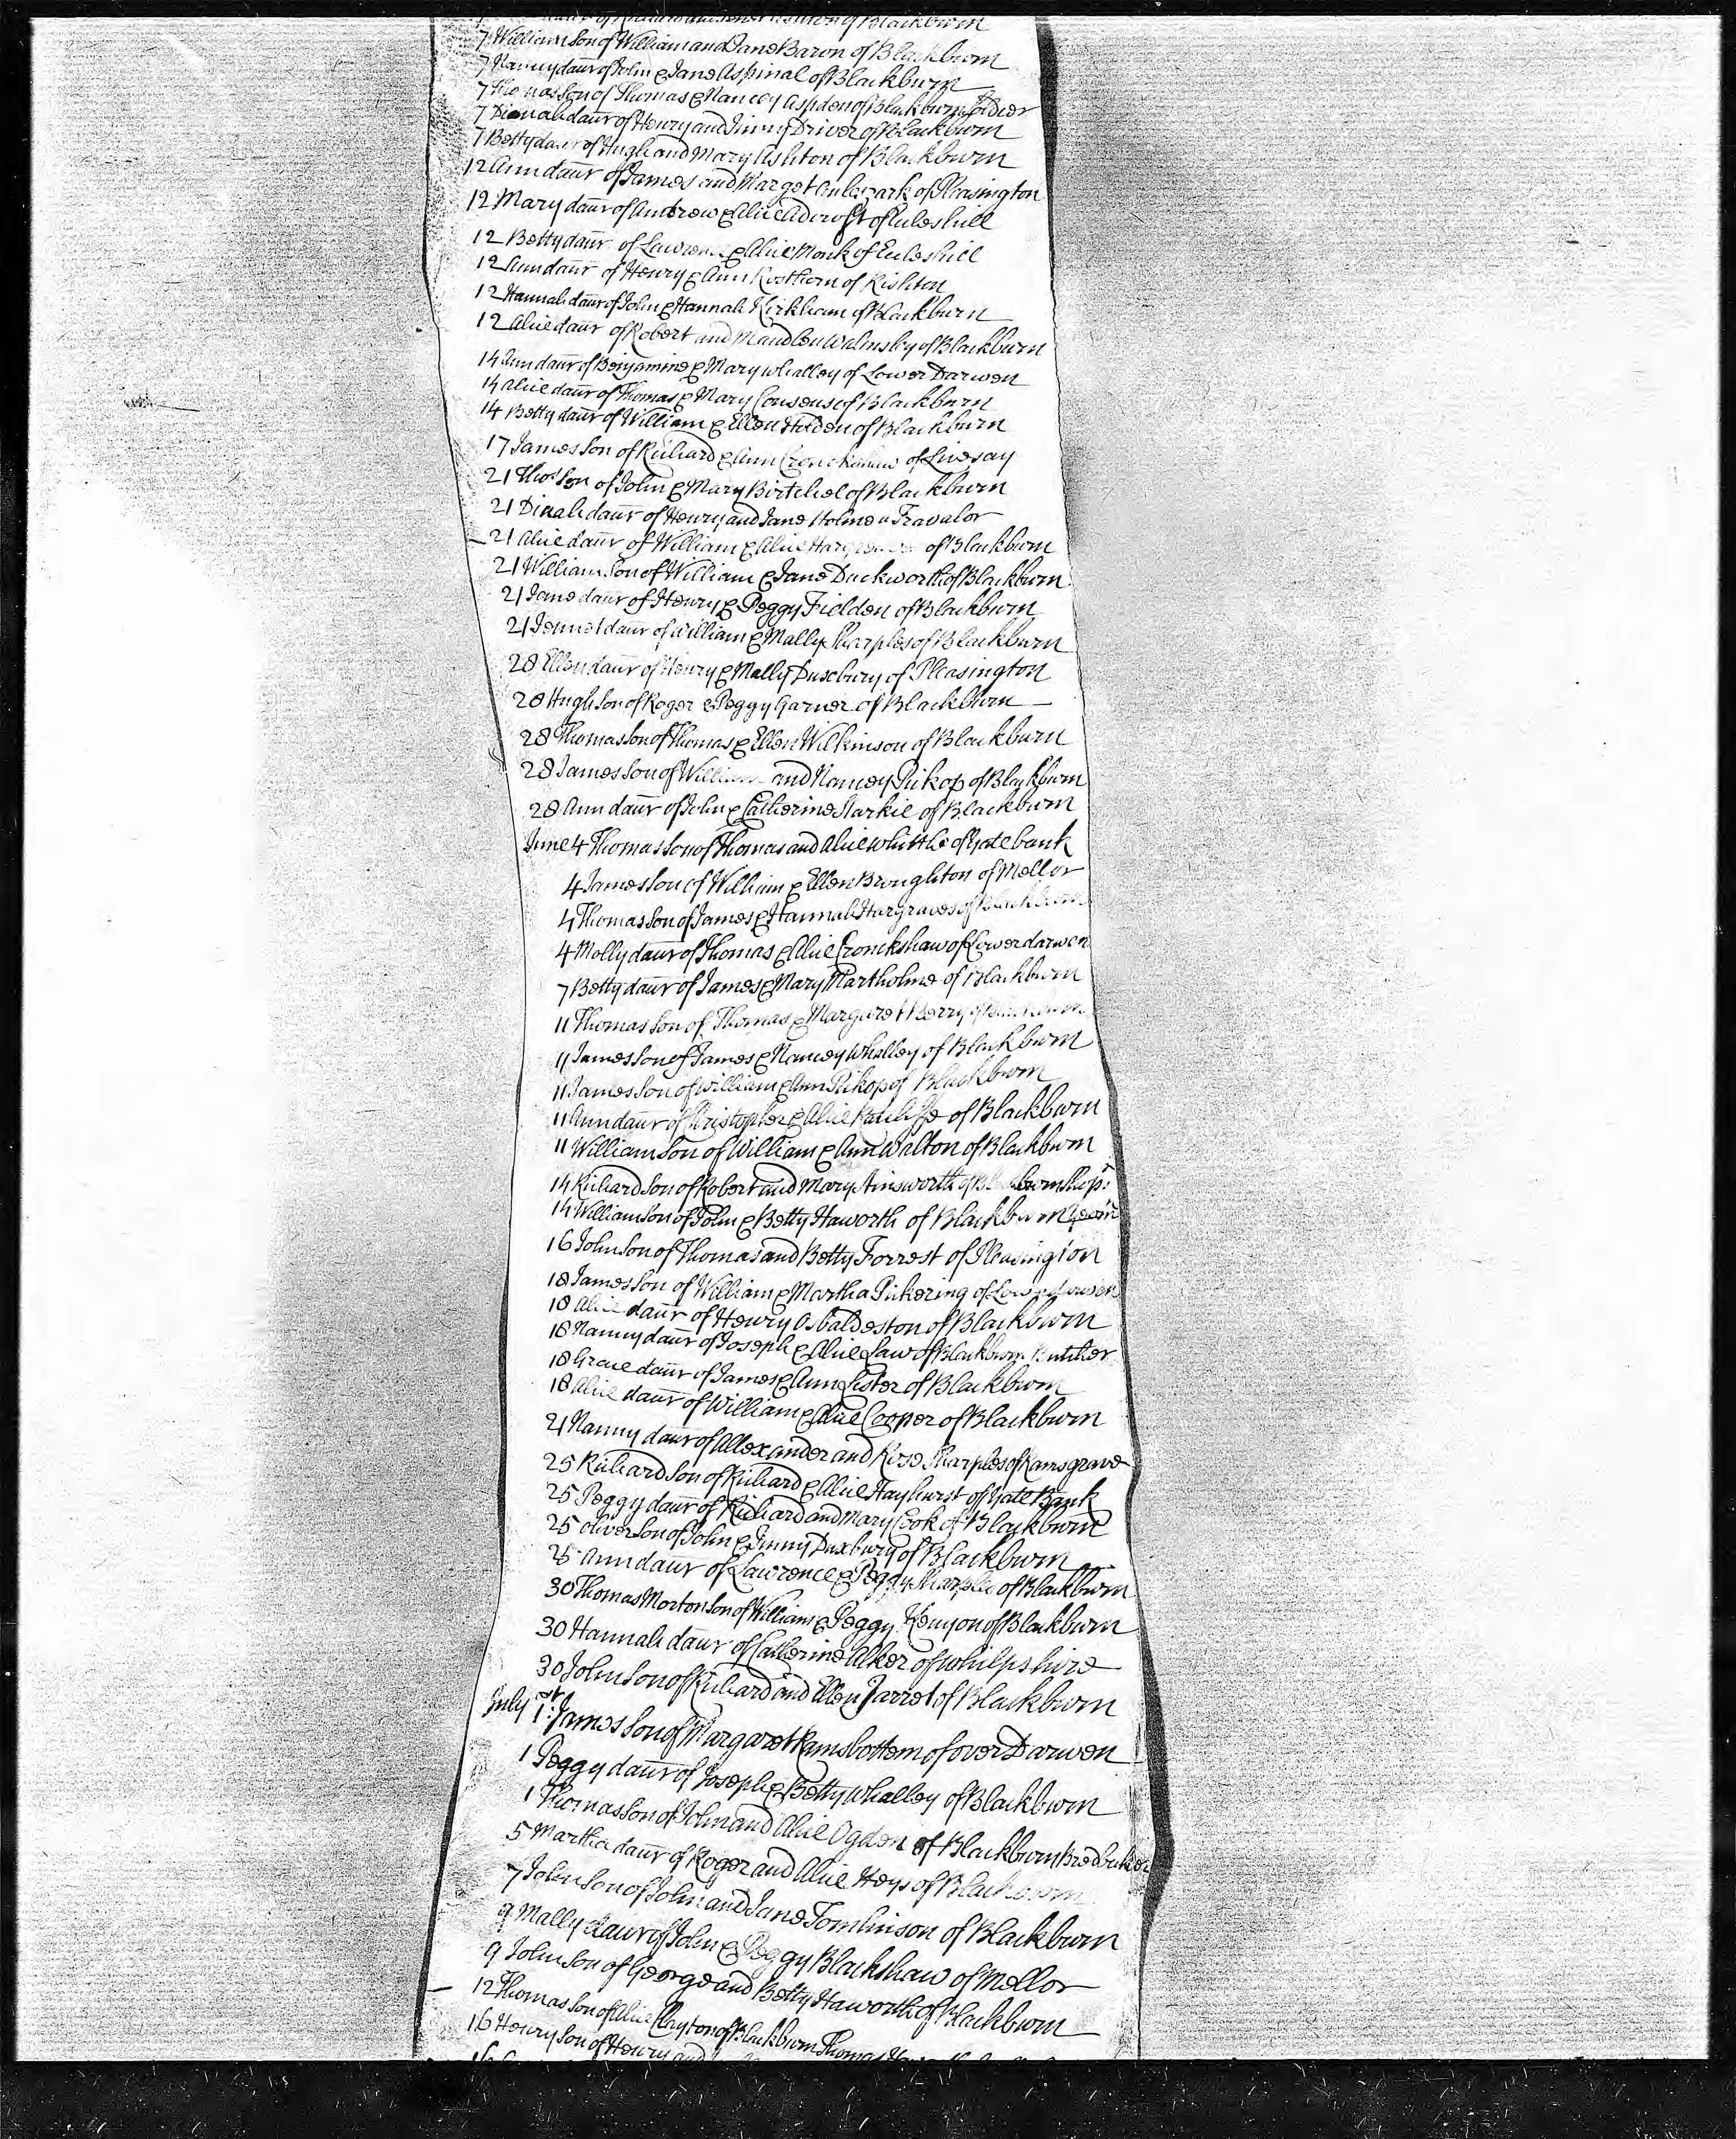 of Blackburn
7 William Son of William and Jane Baron of Blackburn
7 Nanny daur of John & Jane Aspinal of Blackburn
7 Thomas Son of Thomas & Nancy Aspden of Blackburn Soldier
7 Dianah daur of Henry and Jinny Driver of Blackburn
7 Betty daur of Hugh and Mary Ashton of Blackburn
12 Ann daur of James and Marget of Pleasington
12 Mary daur of Andrew & Alice Adcroft of Euleshill
12 Betty daur of Lawrence & Alice Monk of Euleshill
12 Ann daur of Henry & Ann Rosthorn of Rishton
12 Hannah daur of John & Hannah Kirkham of Blackburn
12 Alice daur of Robert and Maudlen Walmsley of Blackburn
14 Ann daur of Benjamine & Mary Whalley of Lower Darwen
14 Alice daur of Thomas & Mary Cousens of Blackburn
14 Betty daur of William & Ellen Hilden of Blackburn
17 James Son of Richard & Ann Cronckshaw of Livesay
21 Thos Son of John & Mary Birtchel of Blackburn
21 Dinah daur of Henry and Jane Holme a Travalor
21 Alice daur of William & Alice of Blackburn
21 William Son of William & Jane Duckworth of Blackburn
21 Jane daur of Henry & Peggy Fielden of Blackburn
21 Jennet daur of William & Mally Sharples of Blackburn
28 Ellen daur of Henry & Mally Duxbury of Pleasington
28 Hugh Son of Roger & Peggy Garner of Blackburn
28 Thomas Son of Thomas & Ellen Wilkinson of Blackburn
28 James Son of William and Nancy Pikop of Blackburn
28 Ann daur of John & Catherine Starkie of Blackburn
June 4 Thomas Son of Thomas and Alice Whittle of Yatebank
4 James Son of William & Ellen Broughton of Mellor
4 Thomas Son of James & Hannah Hargraves of Blackburn
4 Molly daur of Thomas & Alice Cronckshaw of Lower darwen
7 Betty daur of James & Mary Martholme of Blackburn
11 Thomas Son of Thomas & Margaret Berry of Blackburn
11 James Son of James & Nancy Whalley of Blackburn
11 James Son of William & Ann Pikop of Blackburn
11 Ann daur of Christopher & Alice Ratcliffe of Blackburn
11 William Son of William & Ann Walton of Blackburn
14 Richard Son of Robert and Mary Ainsworth of Blackburn Shopr
14 William Son of John & Betty Haworth of Blackburn
16 John Son of Thomas and Betty Forrest of Pleasington
18 James Son of William & Martha Pickering of Lowerdarwen
18 Alice daur of Henry Osbaldeston of Blackburn
18 Nanny daur of Joseph & Alice Law of Blackburn Butcher
18 Grace daur of James & Ann Lister of Blackburn
18 Alice daur of William & Alice Cooper of Blackburn
21 Nanny daur of Allexander and Rose Sharples of Ramsgrave
25 Richard Son of Richard & Alice Hayhurst of Yate Bank
25 Peggy daur of Richard and Mary Cook of Blackburn
25 Oliver Son of John & Jinny Duxbury of Blackburn
25 Ann daur of Lawrence & Peggy Sharples of Blackburn
30 Thomas Morton Son of William & Peggy Kenyon of Blackburn
30 Hannah daur of Catherine Alker of Whilpshire
30 John Son of Richard and Ellen Jarret of Blackburn
July 1st James Son of Margaret Ramsbottem of over Darwen
1 Peggy daur of Joseph & Betty Whalley of Blackburn
1 Thomas Son of John and Alice Ogden of Blackburn Bredbaker
5 Martha daur of Roger and Alice Heys of Blackburn
7 John Son of John and Jane Tomlinson of Blackburn
9 Mally daur of John & Peggy Blackshaw of Mellor
9 John Son of George and Betty Haworth of Blackburn
12 Thomas Son of Alice Clayton of Blackburn Thomas
16 Henry Son of Henry and